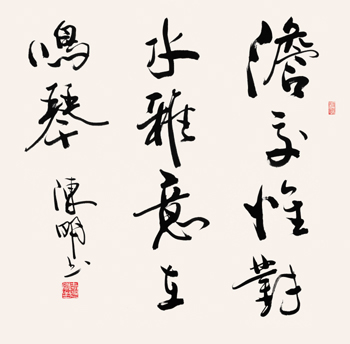 澹交惟對
水雅意在
鳴琴
陳明书